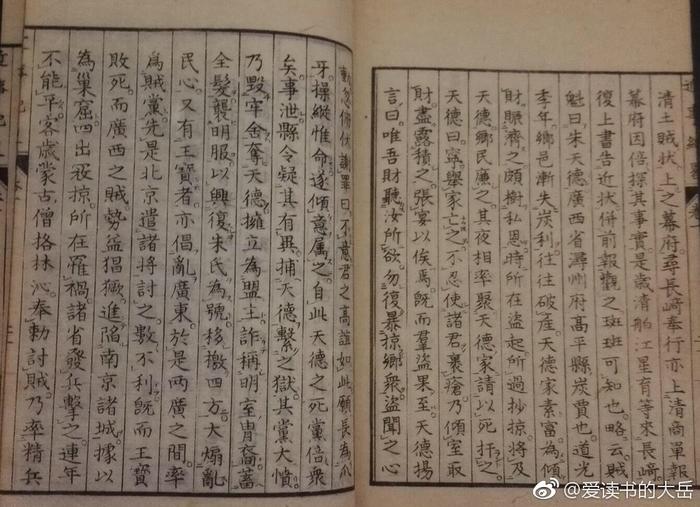 清土賊狀上之幕府尋長﨑奉行亦上清商單報
幕府因倍探其事實是歳清舶江星育等來長﨑
復上書告近狀併前報觀之斑斑可知也略云賊
魁曰朱天德廣西省潯州府高平縣炭賈也道光
季年鄕邑漸失炭利往往破產天德家素富為傾
財賑濟之頗樹私恩時所在盜起所過抄掠將及
天德鄕民廉之其夜相率聚天德家請以死扞之
天德曰寧舉家亡之不忍使諸君裹瘡乃傾室取
財盡露積之張宴以俟焉既而羣盜果至天德揚
言曰唯吾財聽汝所欲勿復暴掠鄕衆盜聞之心
動忽俯伏謝罪曰不意君之高誼如此願長為爪
牙操縱惟命遂傾意属之自此天德之死黨倍衆
矣事泄縣令疑其有異捕天德繫之獄其黨大憤
乃毀牢舍奪天德擁立為盟主詐稱明室胄裔蓄
全髮襲明服以興復朱氏為號移檄四方大煽亂
民心又有王寶者亦倡亂廣東於是兩廣之間率
為賊黨先是北京遣諸將討之數不利既而王寶
敗死而廣西之賊勢益猖獗進陷南京諸城據以
為巢窟四出殺掠所在罹禍諸省發兵擊之連年
不能平客歳蒙古僧格林沁奉勅討賊乃率精兵
@爱读书的大岳